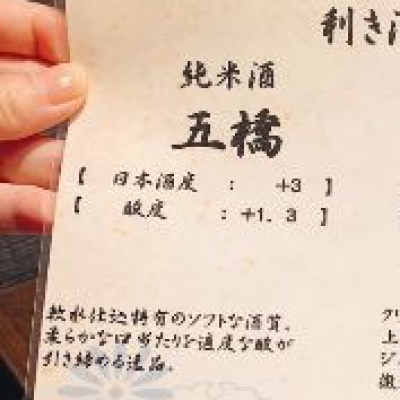 利き酒
純米酒
五橋
【 日本酒度 : +3 】
【 酸度 : +1.3 】
軟水仕込特有のソフトな酒質、
柔らかな口当たりと適度な酸が
引き締める逸品。
クリ
上
ジ